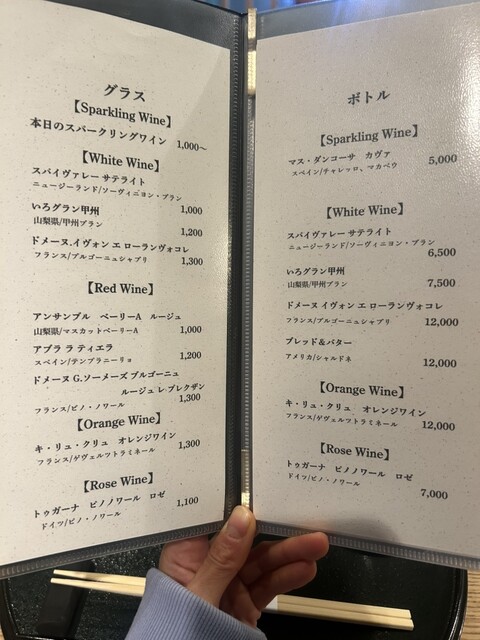 グラス
【Sparkling Wine】
本日のスパークリングワイン 1,000〜
【White Wine】
スパイヴァレー サテライト
ニュージーランド/ソーヴィニヨン・ブラン
1,000
いろグラン甲州
山梨県/甲州ブラン
1,200
ドメーヌ.イヴォン エ ローランヴォコレ
フランス/ブルゴーニュシャブリ 1,300
【Red Wine】
アンサンブル ベーリーA ルージュ
山梨県/マスカットベーリーA 1,000
アブラ ラ ティエラ
スペイン/テンプラニーリョ 1,200
ドメーヌ G.ソーメーズ ブルゴーニュ
ルージュ レ.ブレクザン
フランス/ピノ・ノワール 1,300
【Orange Wine】
キ・リュ・クリュ オレンジワイン
フランス/ゲヴェルツトラミネール 1,300
【Rose Wine】
トゥガーナ ピノノワール ロゼ
ドイツ/ピノ・ノワール 1,100
ボトル
【Sparkling Wine】
マス・ダンコーサ カヴァ
スペイン/チャレッロ、マカベウ 5,000
【White Wine】
スパイヴァレー サテライト
ニュージーランド/ソーヴィニヨン・ブラン
6,500
いろグラン甲州
山梨県/甲州ブラン 7,500
ドメーヌ イヴォン エ ローランヴォコレ
フランス/ブルゴーニュシャブリ 12,000
ブレッド&バター
アメリカ/シャルドネ 12,000
【Orange Wine】
キ・リュ・クリュ オレンジワイン
フランス/ゲヴェルツトラミネール 12,000
【Rose Wine】
トゥガーナ ピノノワール ロゼ
ドイツ/ピノ・ノワール
7,000